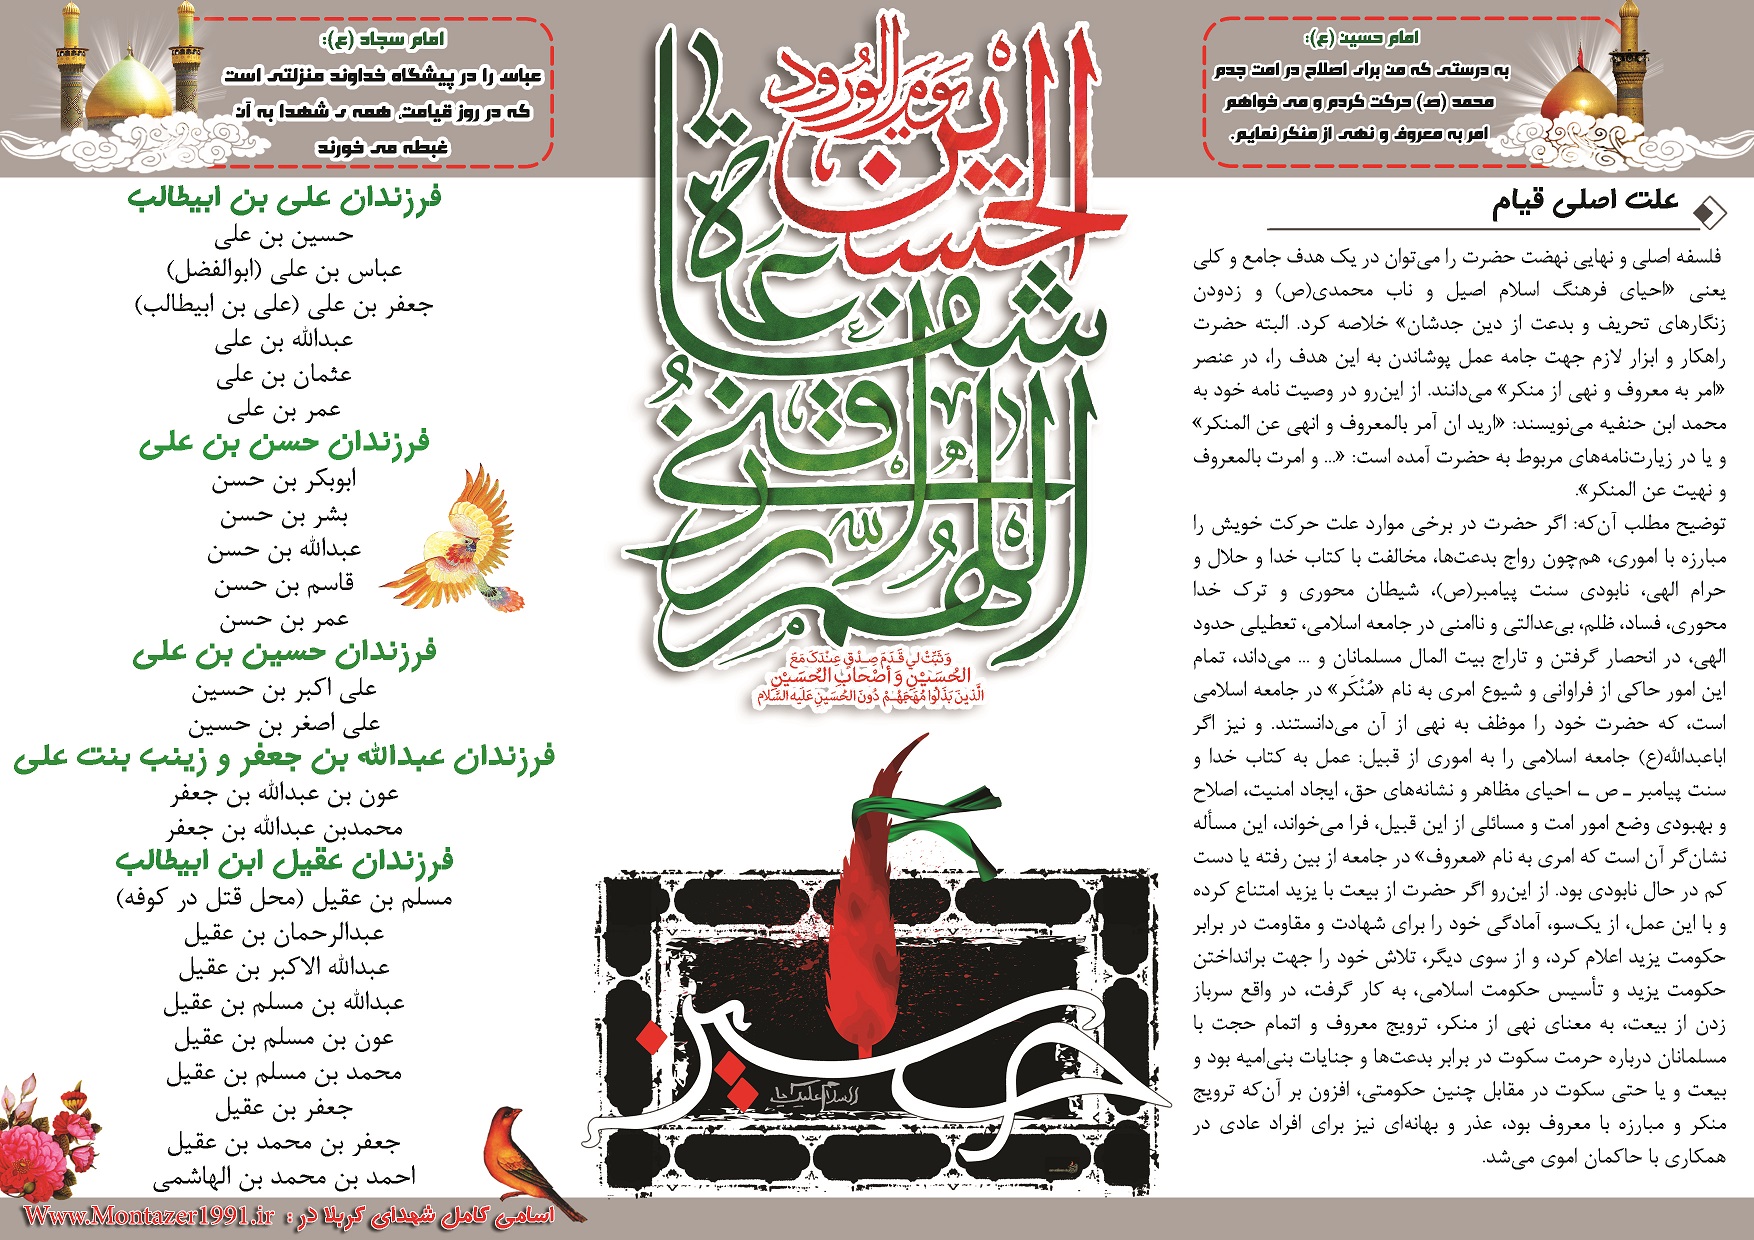 امام حسین (ع):
به درستی که من برای اصلاح در امت جدم
محمد (ص) حرکت کردم و می خواهم
امر به معروف و نهی از منکر نمایم.
علت اصلی قیام
فلسفه اصلی و نهایی نهضت حضرت را می‌توان در یک هدف جامع و کلی
یعنی «احیای فرهنگ اسلام اصیل و ناب محمدی(ص) و زدودن
زنگارهای تحریف و بدعت از دین جدشان» خلاصه کرد. البته حضرت
راهکار و ابزار لازم جهت جامه عمل پوشاندن به این هدف را، در عنصر
«امر به معروف و نهی از منکر» می‌دانند. از این‌رو در وصیت نامه خود به
محمد ابن حنفیه می‌نویسند: «ارید ان آمر بالمعروف و انهی عن المنکر»
و یا در زیارت‌نامه‌های مربوط به حضرت آمده است: «... و امرت بالمعروف
و نهیت عن المنکر».
توضیح مطلب آن‌که: اگر حضرت در برخی موارد علت حرکت خویش را
مبارزه با اموری، هم‌چون رواج بدعت‌ها، مخالفت با کتاب خدا و حلال و
حرام الهی، نابودی سنت پیامبر(ص)، شیطان محوری و ترک خدا
محوری، فساد، ظلم، بی‌عدالتی و ناامنی در جامعه اسلامی، تعطیلی حدود
الهی، در انحصار گرفتن و تاراج بیت المال مسلمانان و ... می‌داند، تمام
این امور حاکی از فراوانی و شیوع امری به نام «مُنْکَر» در جامعه اسلامی
است، که حضرت خود را موظف به نهی از آن می‌دانستند. و نیز اگر
اباعبدالله(ع) جامعه اسلامی را به اموری از قبیل: عمل به کتاب خدا و
سنت پیامبر ـ ص ـ، احیای مظاهر و نشانه‌های حق، ایجاد امنیت، اصلاح
و بهبودی وضع امور امت و مسائلی از این قبیل، فرا می‌خواند، این مسأله
نشان‌گر آن است که امری به نام «معروف» در جامعه از بین رفته یا دست
کم در حال نابودی بود. از این‌رو اگر حضرت از بیعت با یزید امتناع کرده
و با این عمل، از یک‌سو، آمادگی خود را برای شهادت و مقاومت در برابر
حکومت یزید اعلام کرد، و از سوی دیگر، تلاش خود را جهت برانداختن
حکومت یزید و تأسیس حکومت اسلامی، به کار گرفت، در واقع سرباز
زدن از بیعت، به معنای نهی از منکر، ترویج معروف و اتمام حجت با
مسلمانان درباره حرمت سکوت در برابر بدعت‌ها و جنایات بنی‌امیه بود و
بیعت و یا حتی سکوت در مقابل چنین حکومتی، افزون بر آن‌که ترویج
منکر و مبارزه با معروف بود، عذر و بهانه‌ای نیز برای افراد عادی در
همکاری با حاکمان اموی می‌شد.
اللهم ارزقنی
شفاعة
الحسین
یوم الورود
وَثَبِّتْ لي قَدَمَ صِدْقٍ عِنْدَكَ مَعَ
الحُسَيْنِ وَ أصْحابِ الحُسَيْنِ
الَّذينَ بَذَلُوا مُهَجَهُمْ دُونَ الحُسَيْنِ عَلَيهِ السَّلام
حسین
امام سجاد (ع):
عباس را در پیشگاه خداوند منزلتی است
که در روز قیامت، همه ی شهدا به آن
غبطه می خورند
فرزندان علی بن ابیطالب
حسین بن علی
عباس بن علی (ابوالفضل)
جعفر بن علی (علی بن ابیطالب)
عبدالله بن علی
عثمان بن علی
عمر بن علی
فرزندان حسن بن علی
ابوبکر بن حسن
بشر بن حسن
عبدالله بن حسن
قاسم بن حسن
عمر بن حسن
فرزندان حسین بن علی
علی اکبر بن حسین
علی اصغر بن حسین
فرزندان عبدالله بن جعفر و زینب بنت علی
عون بن عبدالله بن جعفر
محمدبن عبدالله بن جعفر
فرزندان عقیل ابن ابیطالب
مسلم بن عقیل (محل قتل در کوفه)
عبدالرحمان بن عقیل
عبدالله الاکبر بن عقیل
عبدالله بن مسلم بن عقیل
عون بن مسلم بن عقیل
محمد بن مسلم بن عقیل
جعفر بن عقیل
جعفر بن محمد بن عقیل
احمد بن محمد بن الهاشمی
اسامی کامل شهدای کربلا در : Www.Montazer1991.ir